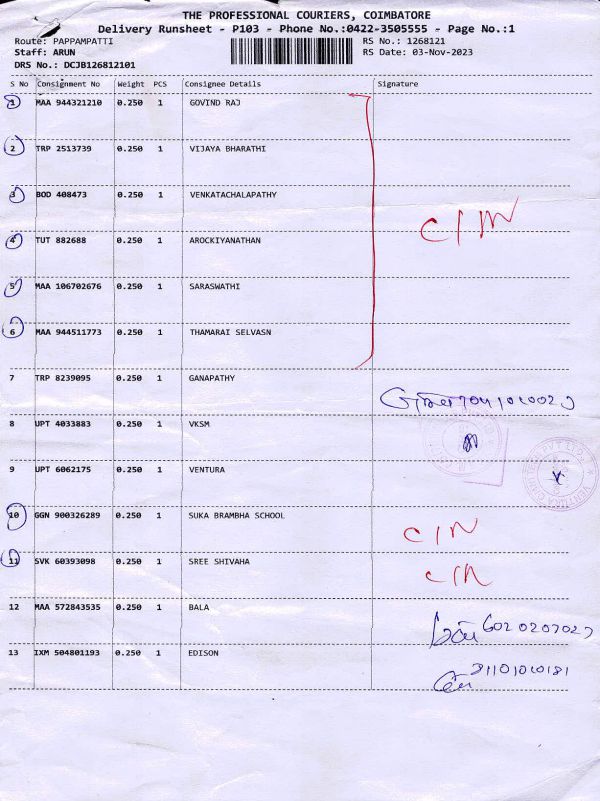 THE PROFESSIONAL COURIERS, COIMBATORE
Delivery Runsheet - P103 - Phone No.:0422-3505555 - Page No.:1
Route: PAPPAMPATTI RS No.: 1268121
Staff: ARUN RS Date: 03-Nov-2023
DRS No.: DCJB126812101
S No Consignment No Weight PCS Consignee Details Signature
1 MAA 944321210 0.250 1 GOVIND RAJ
2 TRP 2513739 0.250 1 VIJAYA BHARATHI
3 BOD 408473 0.250 1 VENKATACHALAPATHY
C/N
4 TUT 882688 0.250 1 AROCKIYANATHAN
5 MAA 106702676 0.250 1 SARASWATHI
6 MAA 944511773 0.250 1 THAMARAI SELVASN
7 TRP 8239095 0.250 1 GANAPATHY
8 UPT 4033883 0.250 1 VKSM
9 UPT 6062175 0.250 1 VENTURA
10 GGN 900326289 0.250 1 SUKA BRAMBHA SCHOOL C/N
11 SVK 60393098 0.250 1 SREE SHIVAHA C/N
12 MAA 572843535 0.250 1 BALA
13 IXM 504801193 0.250 1 EDISON